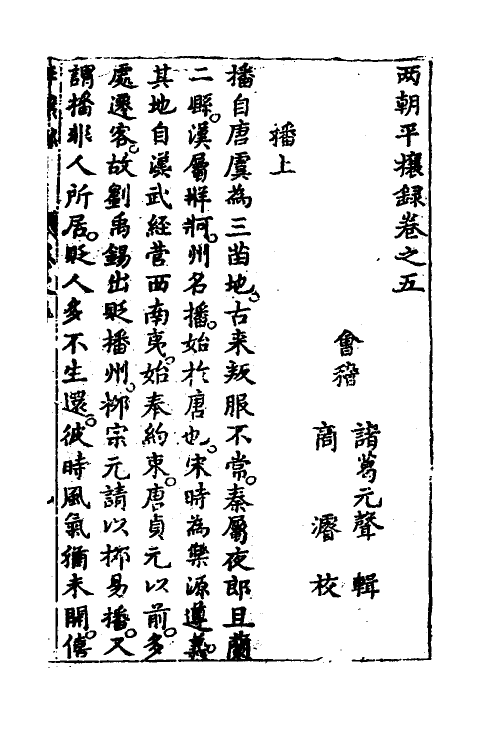 两朝平攘録卷之五
會稽
諸葛元聲 輯
商 濬 校
播上
播自唐虞為三苗地古来叛服不常秦屬夜郎且蘭
二縣漢屬牂牁州名播始於唐也宋時為樂源遵義
其地自漢武經营西南夷始奉約束唐貞元以前多
處遷客故劉禹錫出貶播州栁宗元請以栁易播又
謂播非人所居貶人多不生還彼時風氣猶未開僖